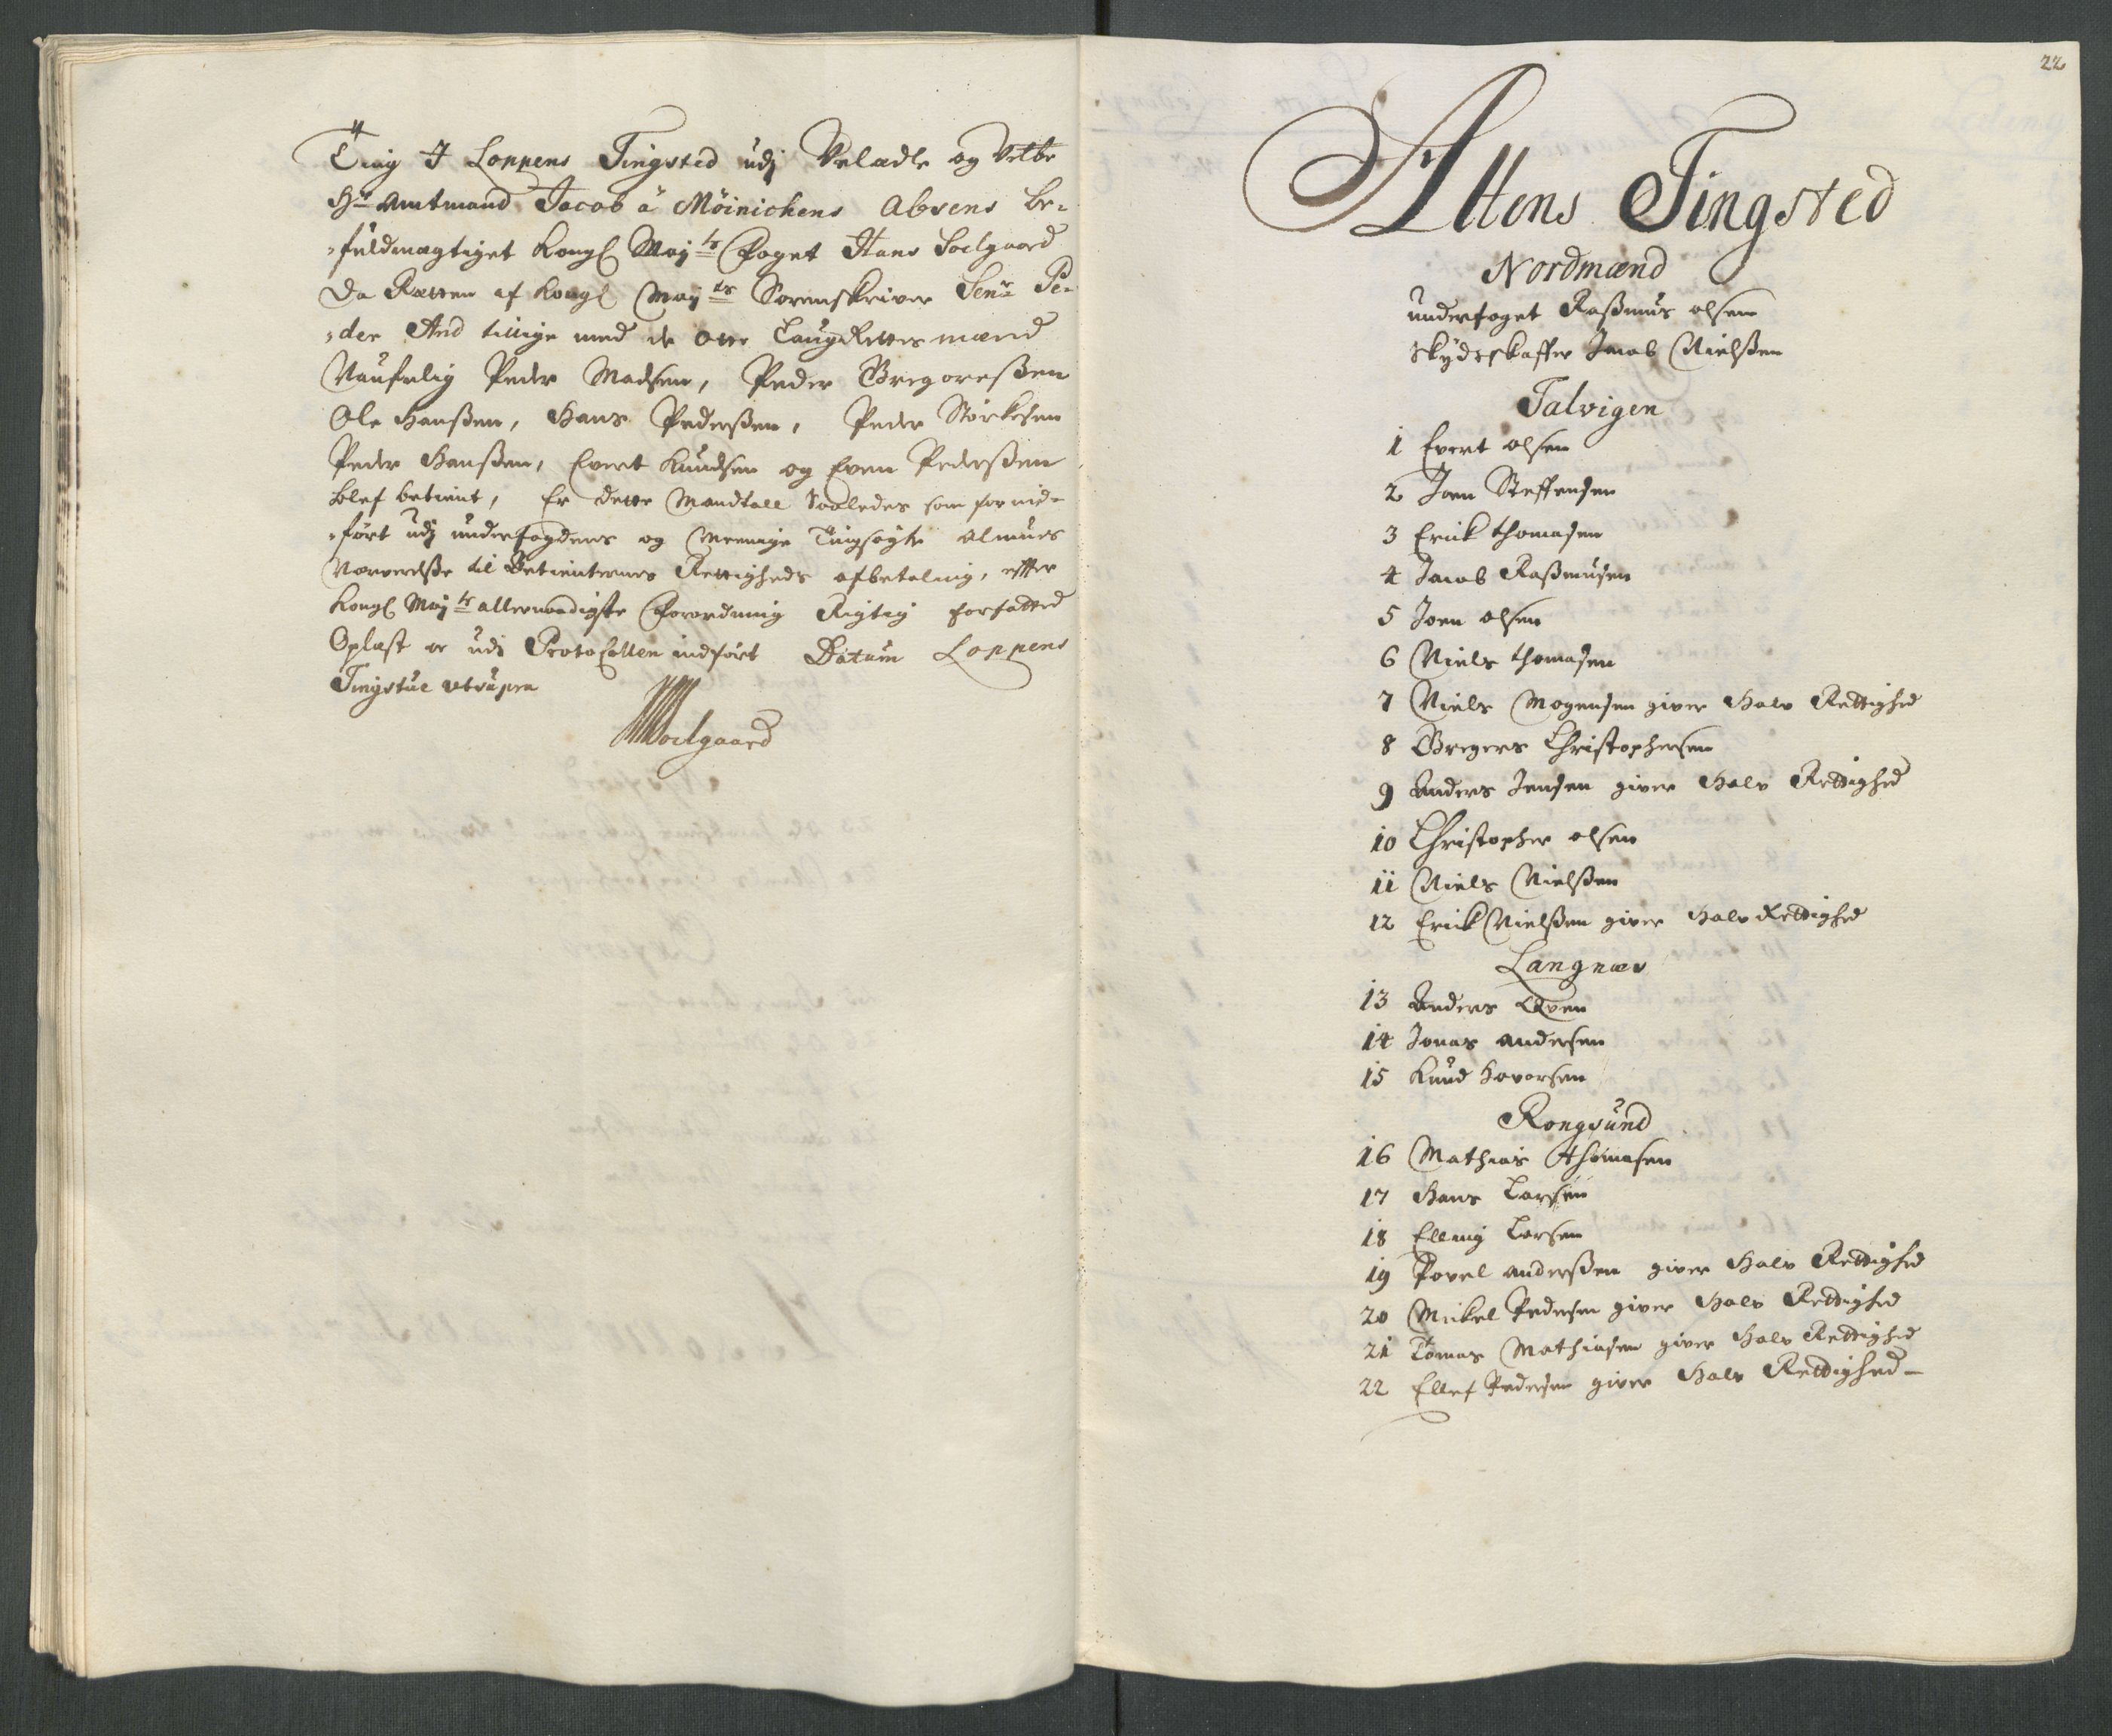 Ting I Loppens Tingsted udj Velædle og Velbr
Hr Amtmand Jacob â Möinichens Absens be-
fuldmægtiget Kongl Mayts Foget Hans Soelgaard
Da Retten af Kongl Mayts Sorenskriver Senr Pe-
der And tillige med de Otte LaugRettesmænd
Naufnlig Peder Madsen, Peder Gregoreßen
Ole Hanßen, Hans Pederßen, Peder Störkesen
Peder Hanßen, Evert Knudsen og Even Pederßen
blef betient, Er dette Mandtall Saaledes som for ind-
fört udj underfogdens og Menige Tingsøgte Almues
Nærverelße til Betienternes Rettigheds afbetaling, efter
Kongl Mayts allernaadigste Forordning Rigtig forfatted
Oplæst oc udj Protocollen indfört Datum Loppens
Tingstue utsupra
Soelgaard
22
Altens Tingsted
Nordmænd
underfoget Raßmus olsen
Skydsskaffer Jacob Nielßen
Talvigen
1 Evert olsen
2 Joen Steffensen
3 Erick thomasen
4 Jacob Raßmusen
5 Joen olsen
6 Niels thomasen
7 Niels Mogensen giver Halv Rettighed
8 Gregers Christophersen
9 Anders Jensen giver Halv Rettighed
10 Christopher olsen
11 Niels Nielßen
12 Erick Nielßen giver Halv Rettighed
Langnæs
13 Anders Qven
14 Jonas andersen
15 Knud Havorsen
Rongsund
16 Mathias Thomasen
17 Hans Larsen
18 Elling Larsen
19 Povel anderßen giver Halv Rettighed
20 Mickel Pedersen giver Halv Rettighed
21 Tomas Mathiasen giver Halv Rettighed
22 Ellef Pedersen giver Halv Rettighed-